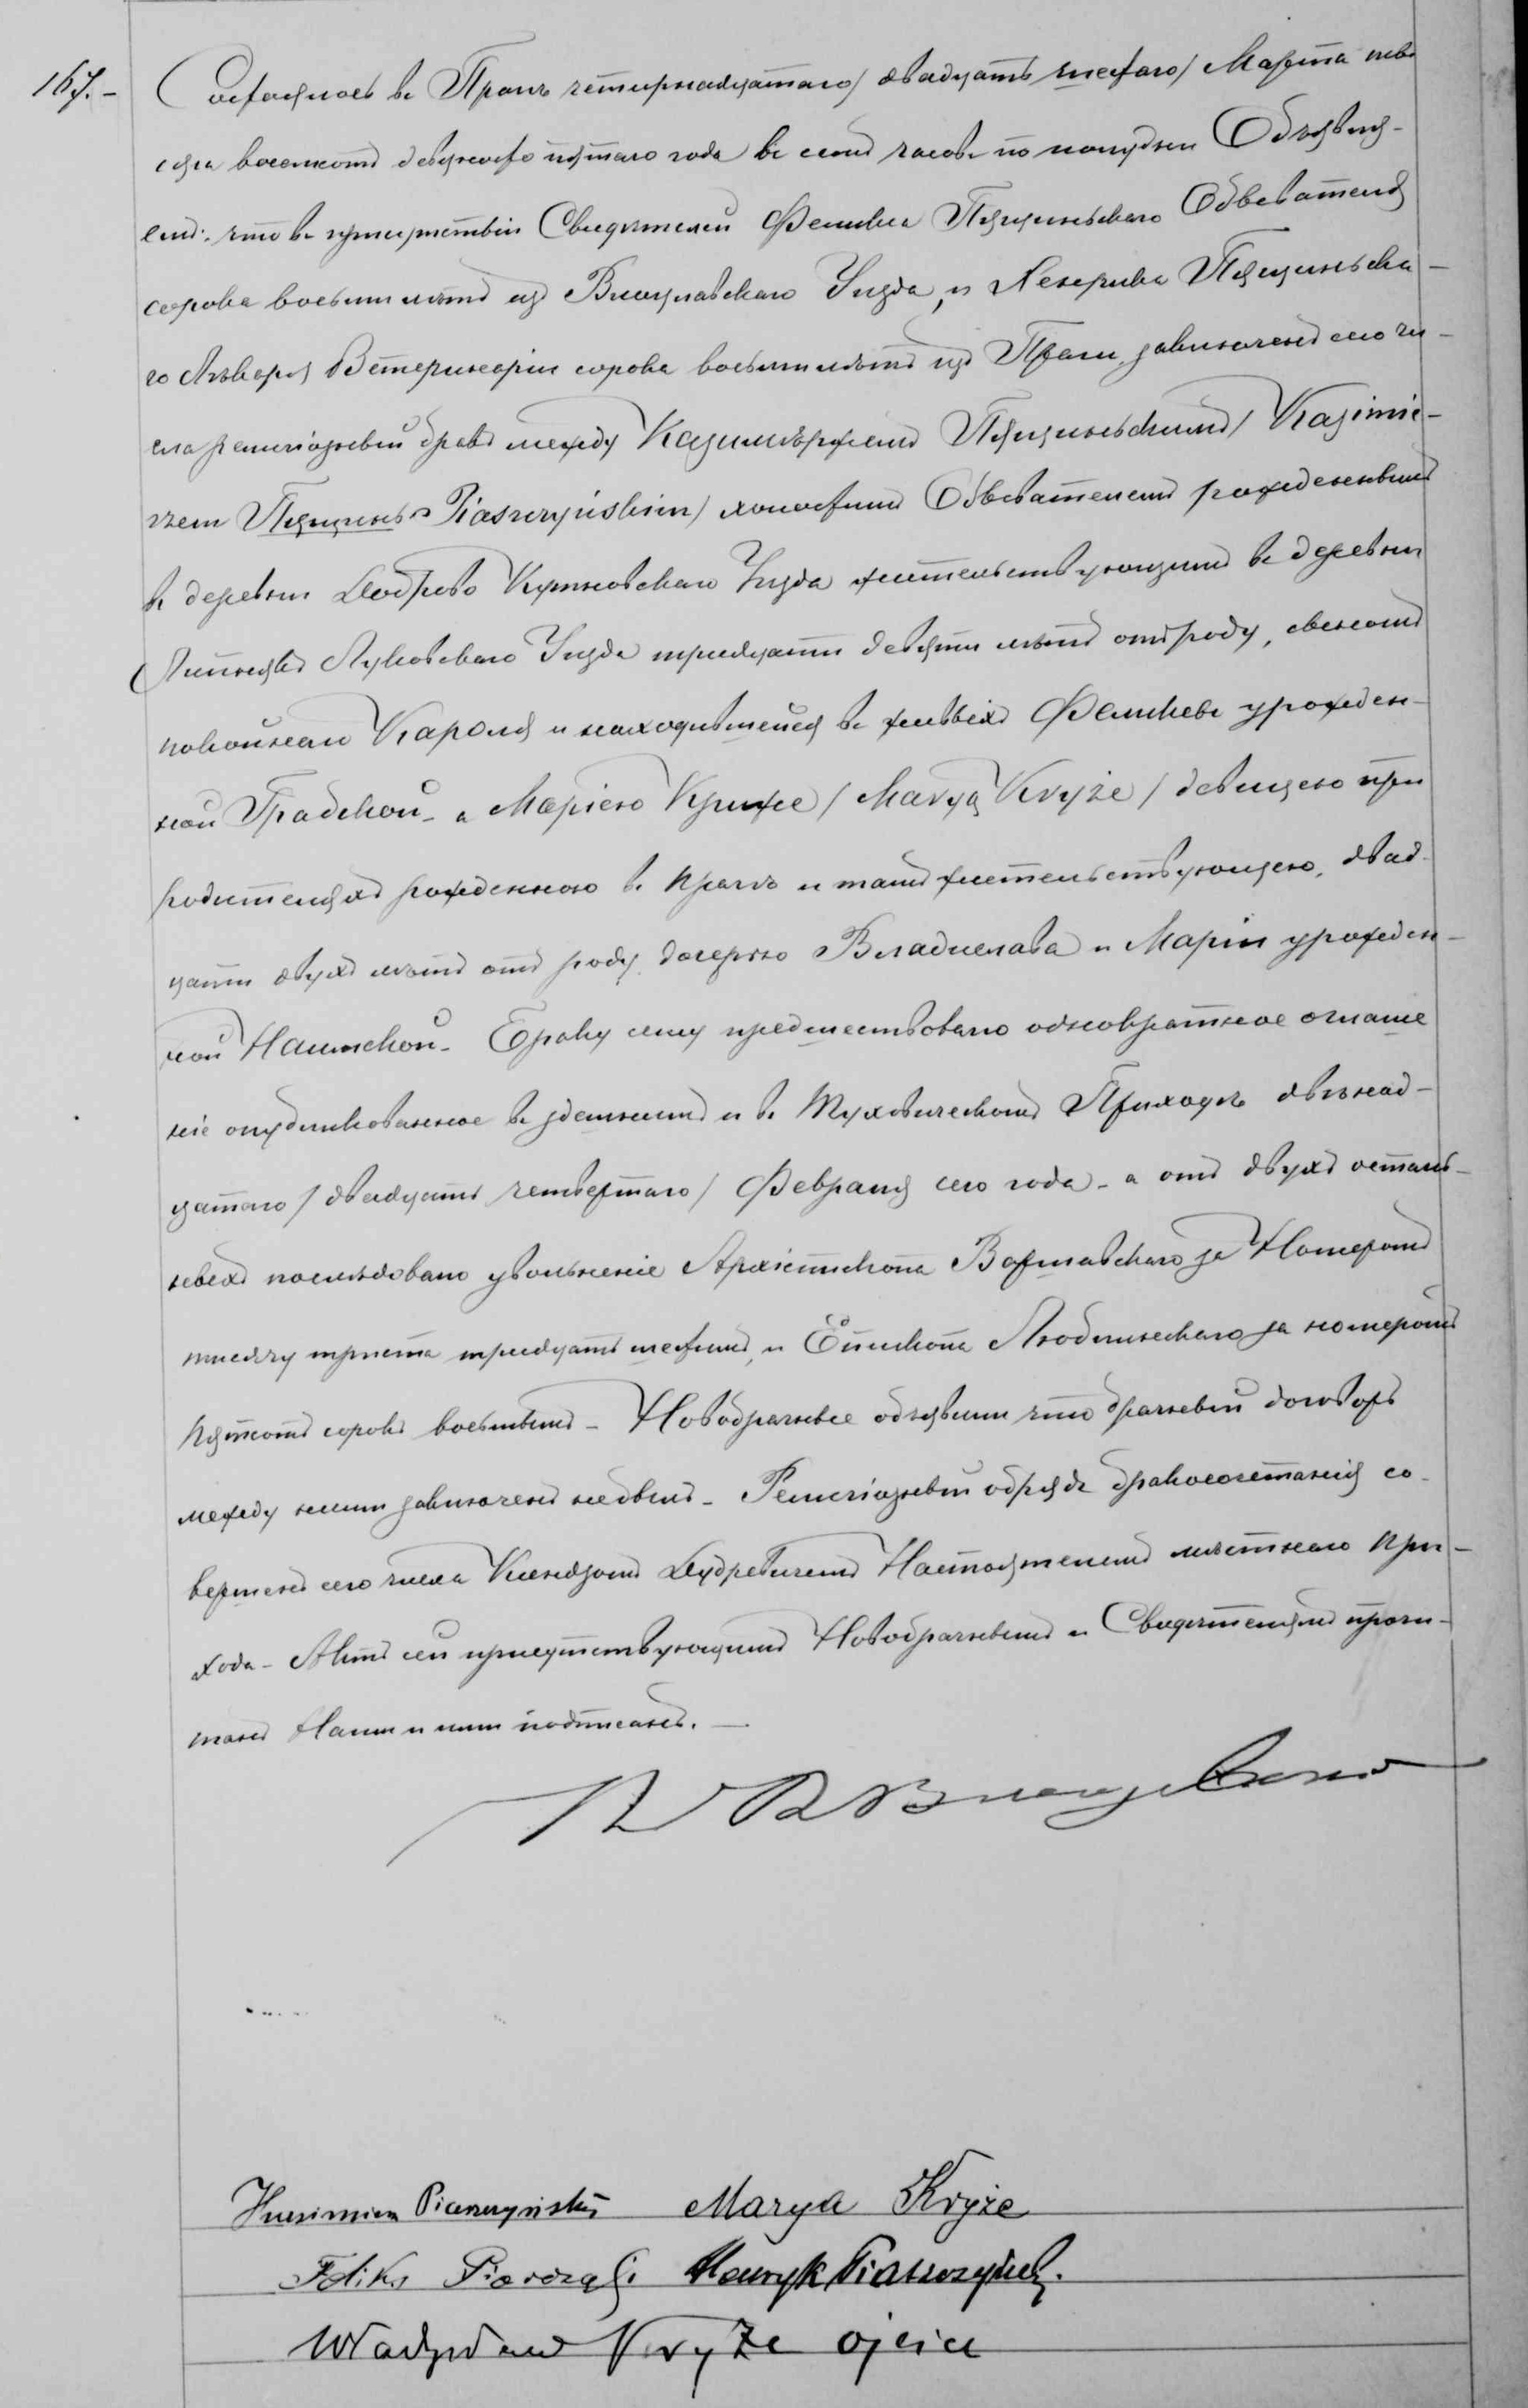 167.-
Состоялось въ Прагѣ четырнадцатаго / двадцать шестаго / Марта тыс
сяча восемсотъ девяносто пятаго года въ семь часовъ по полудни Объявля-
емъ: что въ присутствіи Свидѣтелей Феликса Пясциньскаго Обывателя
сорока восьми лѣтъ изъ Влоцлавскаго Уѣзда, и Генрика Пясциньска-
го Лѣкаря Ветеринаріи сорока восьми лѣтъ изъ Праги, заключенъ сего чи-
сла религіозный бракъ между Казимѣржемъ Пясциньскимъ / Kazimie-
rzem Пясцинь Piaszczyńskim / холостымъ Обывателемъ рожденнымъ
въ деревни Доброво Кутновскаго Уѣзда жительствующимъ въ деревни
Липнякъ Луковскаго Уѣзда тридцати девяти лѣтъ отъ роду, сыномъ
покойнаго Кароля и находившейся въ живыхъ Феликсы урожден-
ной Грабской - а Маріею Крыже / Maryą Kryże / девицею при
родителяхъ рожденною въ Прагѣ и тамъ жительствующею, двад-
цати двухъ лѣтъ отъ роду, дочерью Владислава и Маріи урожден-
ной Наимской - Браку сему предшествовало однократное оглаше
ніе опубликованное въ здѣшнемъ и въ Туховическомъ Приходѣ двѣнад-
цатаго / двадцать четвертаго / Февраля сего года - а отъ двухъ осталь-
ныхъ послѣдовало увольненіе Архіепископа Варшавскаго за Номеромъ
тысячу триста тридцать шестымъ, и Епископа Люблинскаго за номеромъ
пятьсотъ сорокъ восьмымъ - Новобрачные объявили что брачный договоръ
между ними заключенъ небылъ - Религіозный обрядъ бракосочетанія со-
вершенъ сего числа Ксендзомъ Дудревичемъ Настоятелемъ мѣстнаго При-
хода - Актъ сей присутствующимъ Новобрачнымъ и Свидѣтелямъ прочи-
танъ Нами и ими подписанъ. —
Kazimierz Piaszczyński Marya Kryże
Feliks Henryk Piaszczyński
Władysław Kryże ojciec